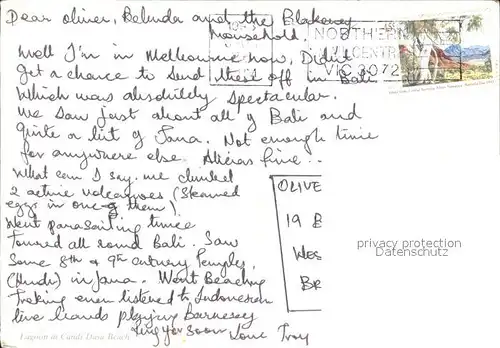 Dear Oliver, Belinda and the Blakeney
household.
NORTHERN
MAIL CENTRE
VIC 3072
Well I'm in Melbourne now, Didn't
get a chance to send this off in Bali
Which was absolutely spectacular.
We saw just about all of Bali and
quite a bit of Java. Not enough time
for anywhere else. Alicias fine..
What can I say. we climbed
2 active volcanoes (Steamed
eggs in one of them).
Went parasailing twice
Toured all round Bali. Saw
Some 8th & 9th century Temples,
(Hindu) in Java. Went Beaching
Treking even listened to Indonesian
live bands playing Barnesey
ring you soon Love Troy
OLIVE
19 B
WES
BR
privacy protection
Datenschutz
Lagoon at Candi Dasa Beach